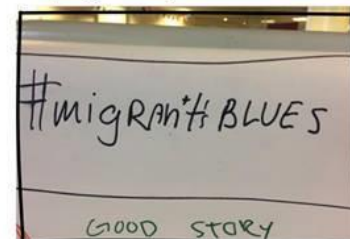 #migRAnt's BLUES
GOOD STORY